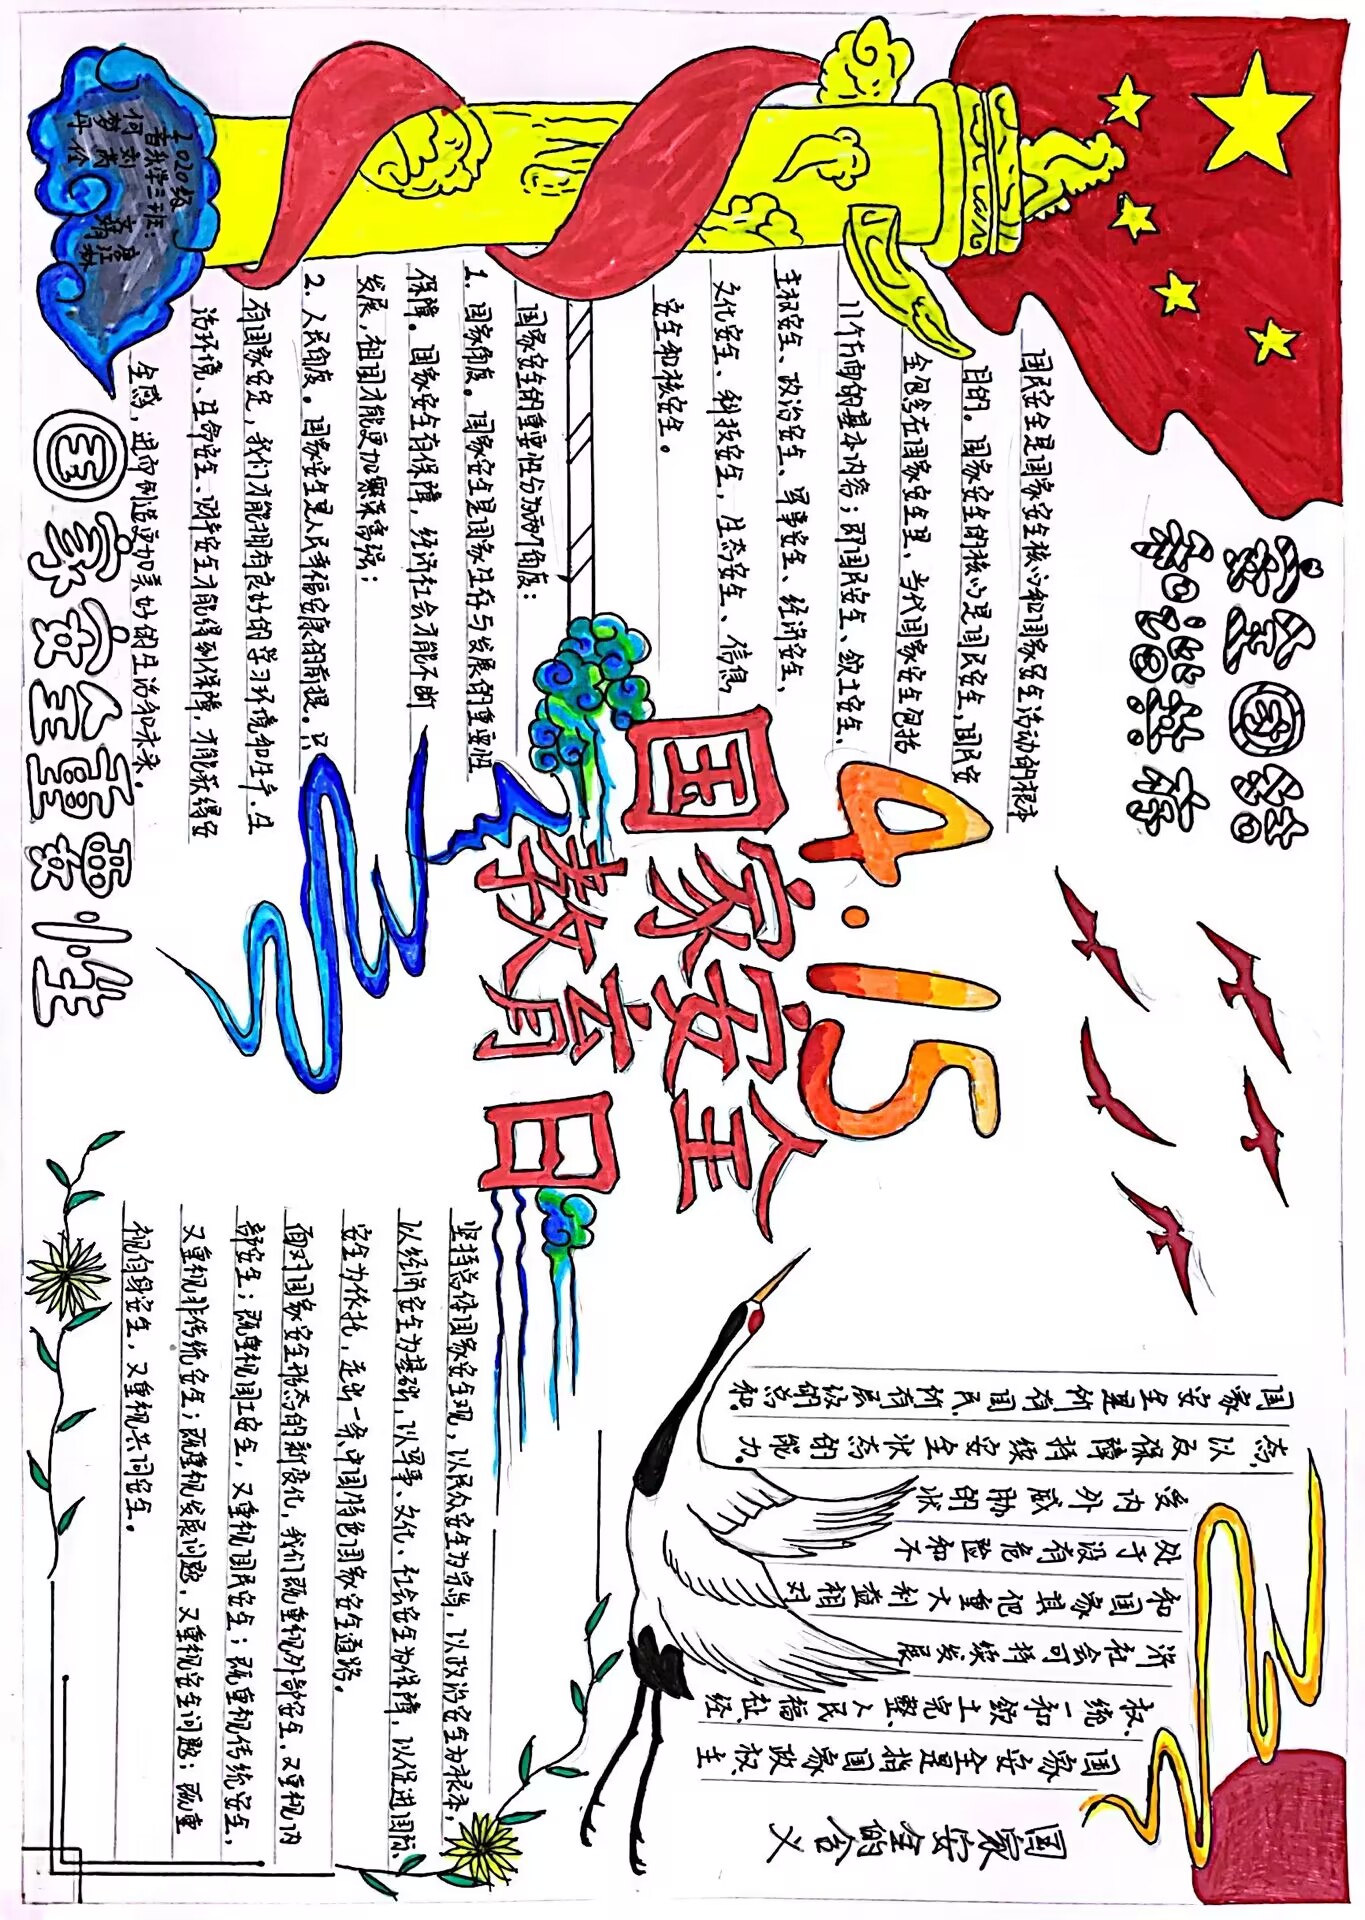 安全国家
4.15
国家安全
教育日
国民安全是国家安全核心和国家安全活动的根本
目的。国家安全的核心是国民安全,国民安
全包含在国家安全里、当代国家安全包括
11个方面的基本内容;即国民安全、领土安全、
主权安全、政治安全、军事安全、经济安全、
文化安全、科技安全,生态安全、信息
安全和核安全。
国家安全的含义
国家安全是指国家政权主
权、统一和领土完整、人民福祉、经
济社会可持续发展
和国家其他重大利益相对
处于没有危险和不
受内外威胁的状
态,以及保障持续安全状态的能力。
国家安全是所有国民、所有层级的总和.
国家安全的重要性分为两个角度:
1. 国家角度。国家安全是国家生存与发展的重要性
保障。国家安全有保障,经济社会才能不断
发展,祖国才能更加繁荣富强;
2. 人民角度。国家安全是人民幸福安康的前提。只
有国家安定,我们才能拥有良好的学习环境和生产、生
活环境、生命安全、财产安全才能得到保障,才能获得安
全感,进而创造更加美妙的生活和未来。
国家安全重要性
坚持总体国家安全观,以民众安全为宗旨,以政治安全为根本,
以经济安全为基础,以军事、文化、社会安全为保障,以促进国际
安全为依托,走出一条中国特色国家安全道路。
面对国家安全形态的新变化,我们既重视外部安全、又重视内
部安全;既重视国土安全,又重视国民安全;既重视传统安全,
又重视非传统安全;既重视发展问题、又重视安全问题;既重
视自身安全,又重视共同安全。